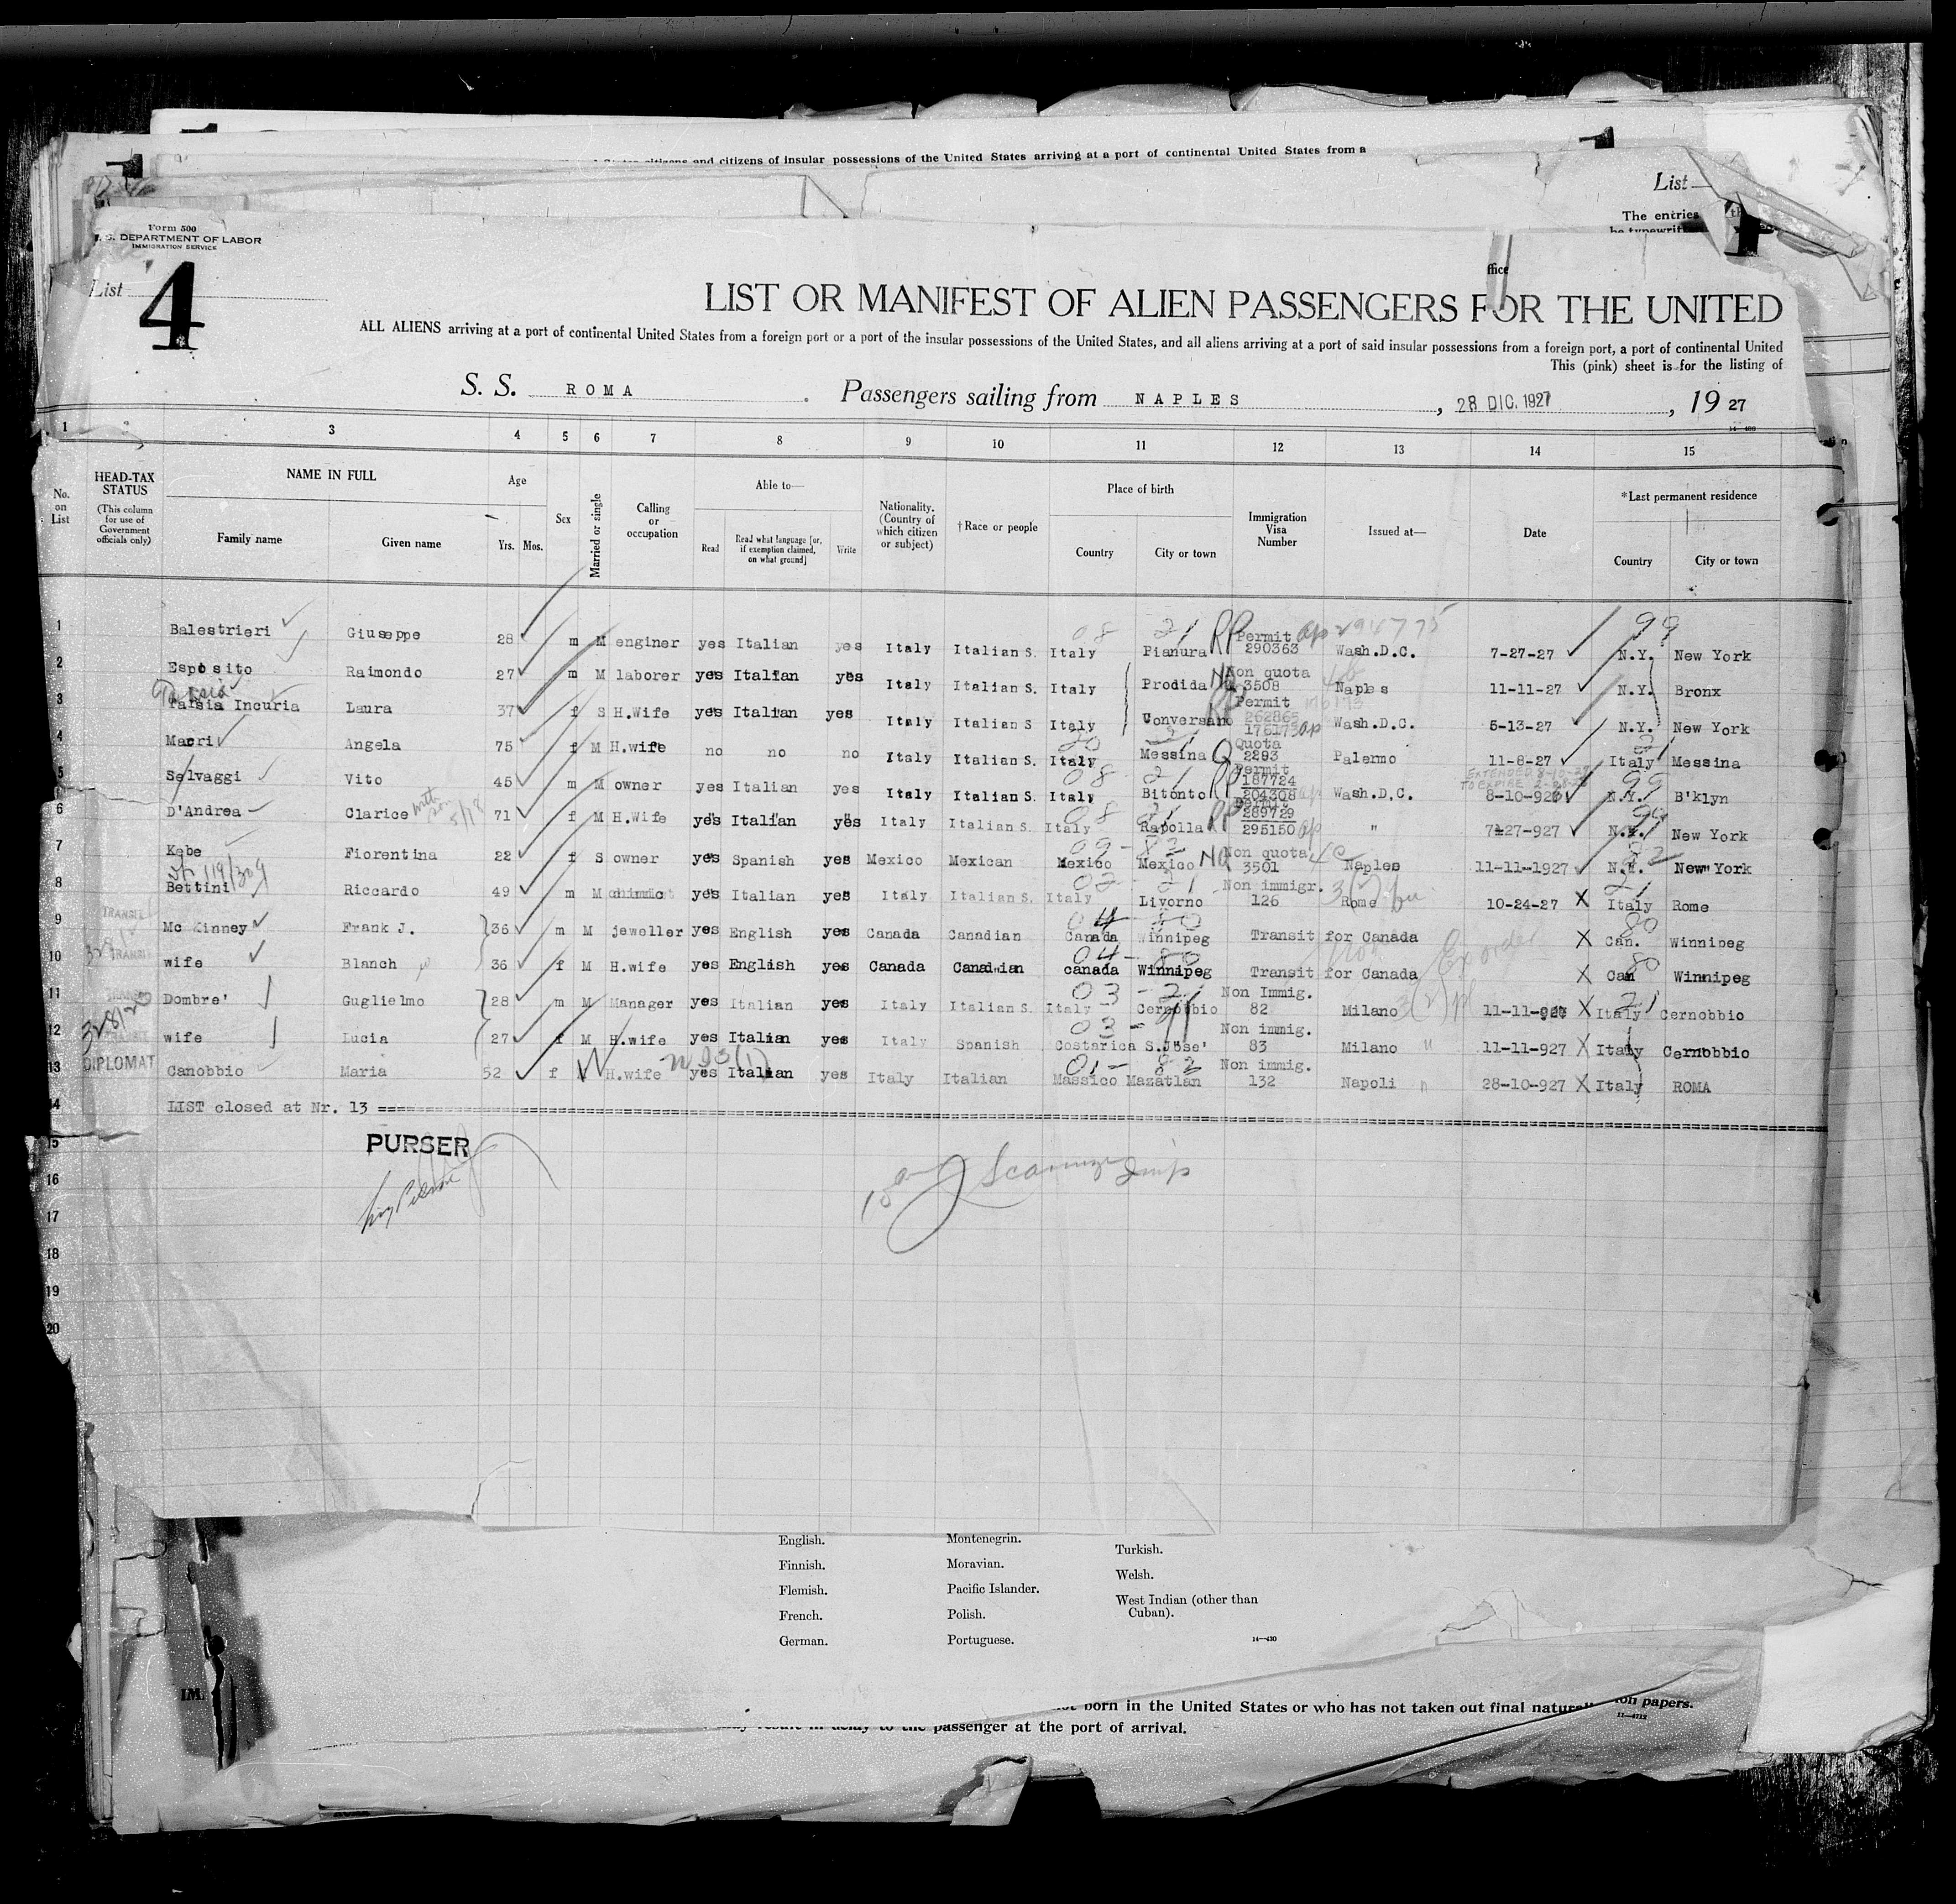 citizens and citizens of insular possessions of the United States arriving at a port of continental United States from a
List
The entries
be typewrit
Form 500
U. S. DEPARTMENT OF LABOR
IMMIGRATION SERVICE
ffice
List 4
LIST OR MANIFEST OF ALIEN PASSENGERS FOR THE UNITED
ALL ALIENS arriving at a port of continental United States from a foreign port or a port of the insular possessions of the United States, and all aliens arriving at a port of said insular possessions from a foreign port, a port of continental United
This (pink) sheet is for the listing of
S. S. ROMA Passengers sailing from NAPLES, 28 DIC. 1927, 19 27
1 2 3 4 5 6 7 8 9 10 11 12 13 14 15
No. on List HEAD-TAX STATUS (This column for use of Government officials only) NAME IN FULL Family name Given name Age Yrs. Mos. Sex Married or single Calling or occupation Able to— Read Read what language [or, if exemption claimed, on what ground] Write Nationality. (Country of which citizen or subject) †Race or people Place of birth Country City or town Immigration Visa Number Issued at— Date *Last permanent residence Country City or town
1 Balestrieri Giuseppe 28 m M enginer yes Italian yes Italy Italian S. Italy Pianura RP Permit 290363 Wash.D.C. 7-27-27 N.Y. New York
2 Esposito Raimondo 27 m M laborer yes Italian yes Italy Italian S. Italy Prodida NQ Non quota 3508 Naples 11-11-27 N.Y. Bronx
3 Tarsia Incuria Laura 37 f S H.Wife yes Italian yes Italy Italian S Italy Conversano RP Permit 262865 Wash.D.C. 5-13-27 N.Y. New York
4 Macri Angela 75 f M H.wife no no no Italy Italian S. Italy Messina Q Quota 2293 Palermo 11-8-27 Italy Messina
5 Selvaggi Vito 45 m M owner yes Italian yes Italy Italian S. Italy Bitonto RP Permit 187724 204308 Wash.D.C. 8-10-926 N.Y. B'klyn
6 D'Andrea Clarice 71 f M H.Wife yes Italian yes Italy Italian S. Italy Rapolla RP Permit 289729 295150 " 7-27-927 N.Y. New York
7 Kebe Fiorentina 22 f S owner yes Spanish yes Mexico Mexican Mexico Mexico NQ Non quota 3501 Naples 11-11-1927 N.Y. New York
8 Bettini Riccardo 49 m M yes Italian yes Italy Italian S. Italy Livorno Non immigr. 126 Rome 10-24-27 X Italy Rome
9 TRANSIT Mc Kinney Frank J. 36 m M jeweller yes English yes Canada Canadian Canada Winnipeg Transit for Canada X Can. Winnipeg
10 TRANSIT wife Blanch 36 f M H.wife yes English yes Canada Canadian canada Winnipeg Transit for Canada X Can Winnipeg
11 Dombre' Guglielmo 28 m M Manager yes Italian yes Italy Italian S. Italy Cernobbio Non Immig. 82 Milano 11-11-927 X Italy Cernobbio
12 wife Lucia 27 f M H.wife yes Italian yes Italy Spanish Costarica S.Jose' Non immig. 83 Milano 11-11-927 X Italy Cernobbio
13 DIPLOMAT Canobbio Maria 52 f W H.wife yes Italian yes Italy Italian Massico Mazatlan Non immig. 132 Napoli 28-10-927 X Italy ROMA
14 LIST closed at Nr. 13
15 PURSER
16
17
18
19
20
English. Montenegrin. Turkish.
Finnish. Moravian. Welsh.
Flemish. Pacific Islander. West Indian (other than
French. Polish. Cuban).
German. Portuguese. 14—430
IM
born in the United States or who has not taken out final papers.
11—4712
result in delay to the passenger at the port of arrival.